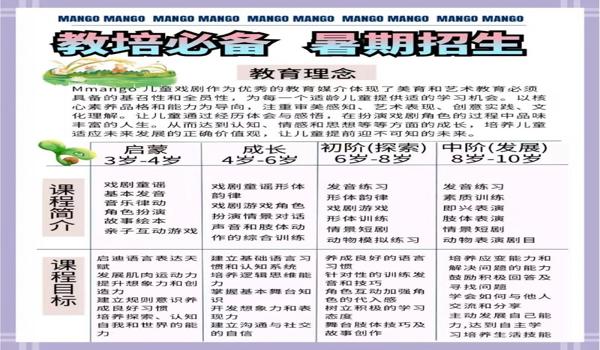 MANGO MANGO MANGO MANGO MANGO MANGO MANGO MANGO MANGO MANGO
教培必备 暑期招生
教育理念
Mmango儿童戏剧作为优秀的教育媒介体现了美育和艺术教育必须
具备的基础性和全员性，为每一个适龄儿童提供适的学习机会。以核
心素养品格和能力为导向，注重审美感知、艺术表现、创意实践、文
化理解。让儿童通过经历体会与感悟，在扮演戏剧角色的过程中品味
丰富的人生。从而达到认知、情感和思想等等方面的成长，培养儿童
适应未来发展的正确价值观，让儿童提前迎不可知的未来。
启蒙 成长 初阶(探索) 中阶(发展)
3岁-4岁 4岁-6岁 6岁-8岁 8岁-10岁
课程简介
戏剧童谣
基本发音
音乐律动
角色扮演
故事绘本
亲子互动游戏
戏剧童谣形体
韵律
戏剧游戏角色
扮演情景对话
声音和肢体动
作的综合训练
发音练习
形体韵律
戏剧游戏
形体训练
情景短剧
动物模拟练习
发音练习
素质训练
即兴表演
肢体表演
情景短剧
动物表演剧目
课程目标
启迪语言表达天
赋
发展肌肉运动力
提升想象力和创
造力
建立规则意识养
成良好习惯
培养探索、认知
自我和世界的能
力
建立基础语言习
惯和认知系统
培养逻辑思维能
力
掌握基本舞台知
识
开发想象力和表
现力
建立沟通与社交
的自信
养成良好的语言
习惯
针对性的训练发
音和技巧
角色互动加强角
色的代入感
树立积极的学习
态度
舞台肢体技巧及
故事创作
培养应变能力和
解决问题的能力
鼓励积极回答及
寻找问题
学会如何与他人
交流和分享
主动发展自己能
力,达到自主学
习培养生活技能